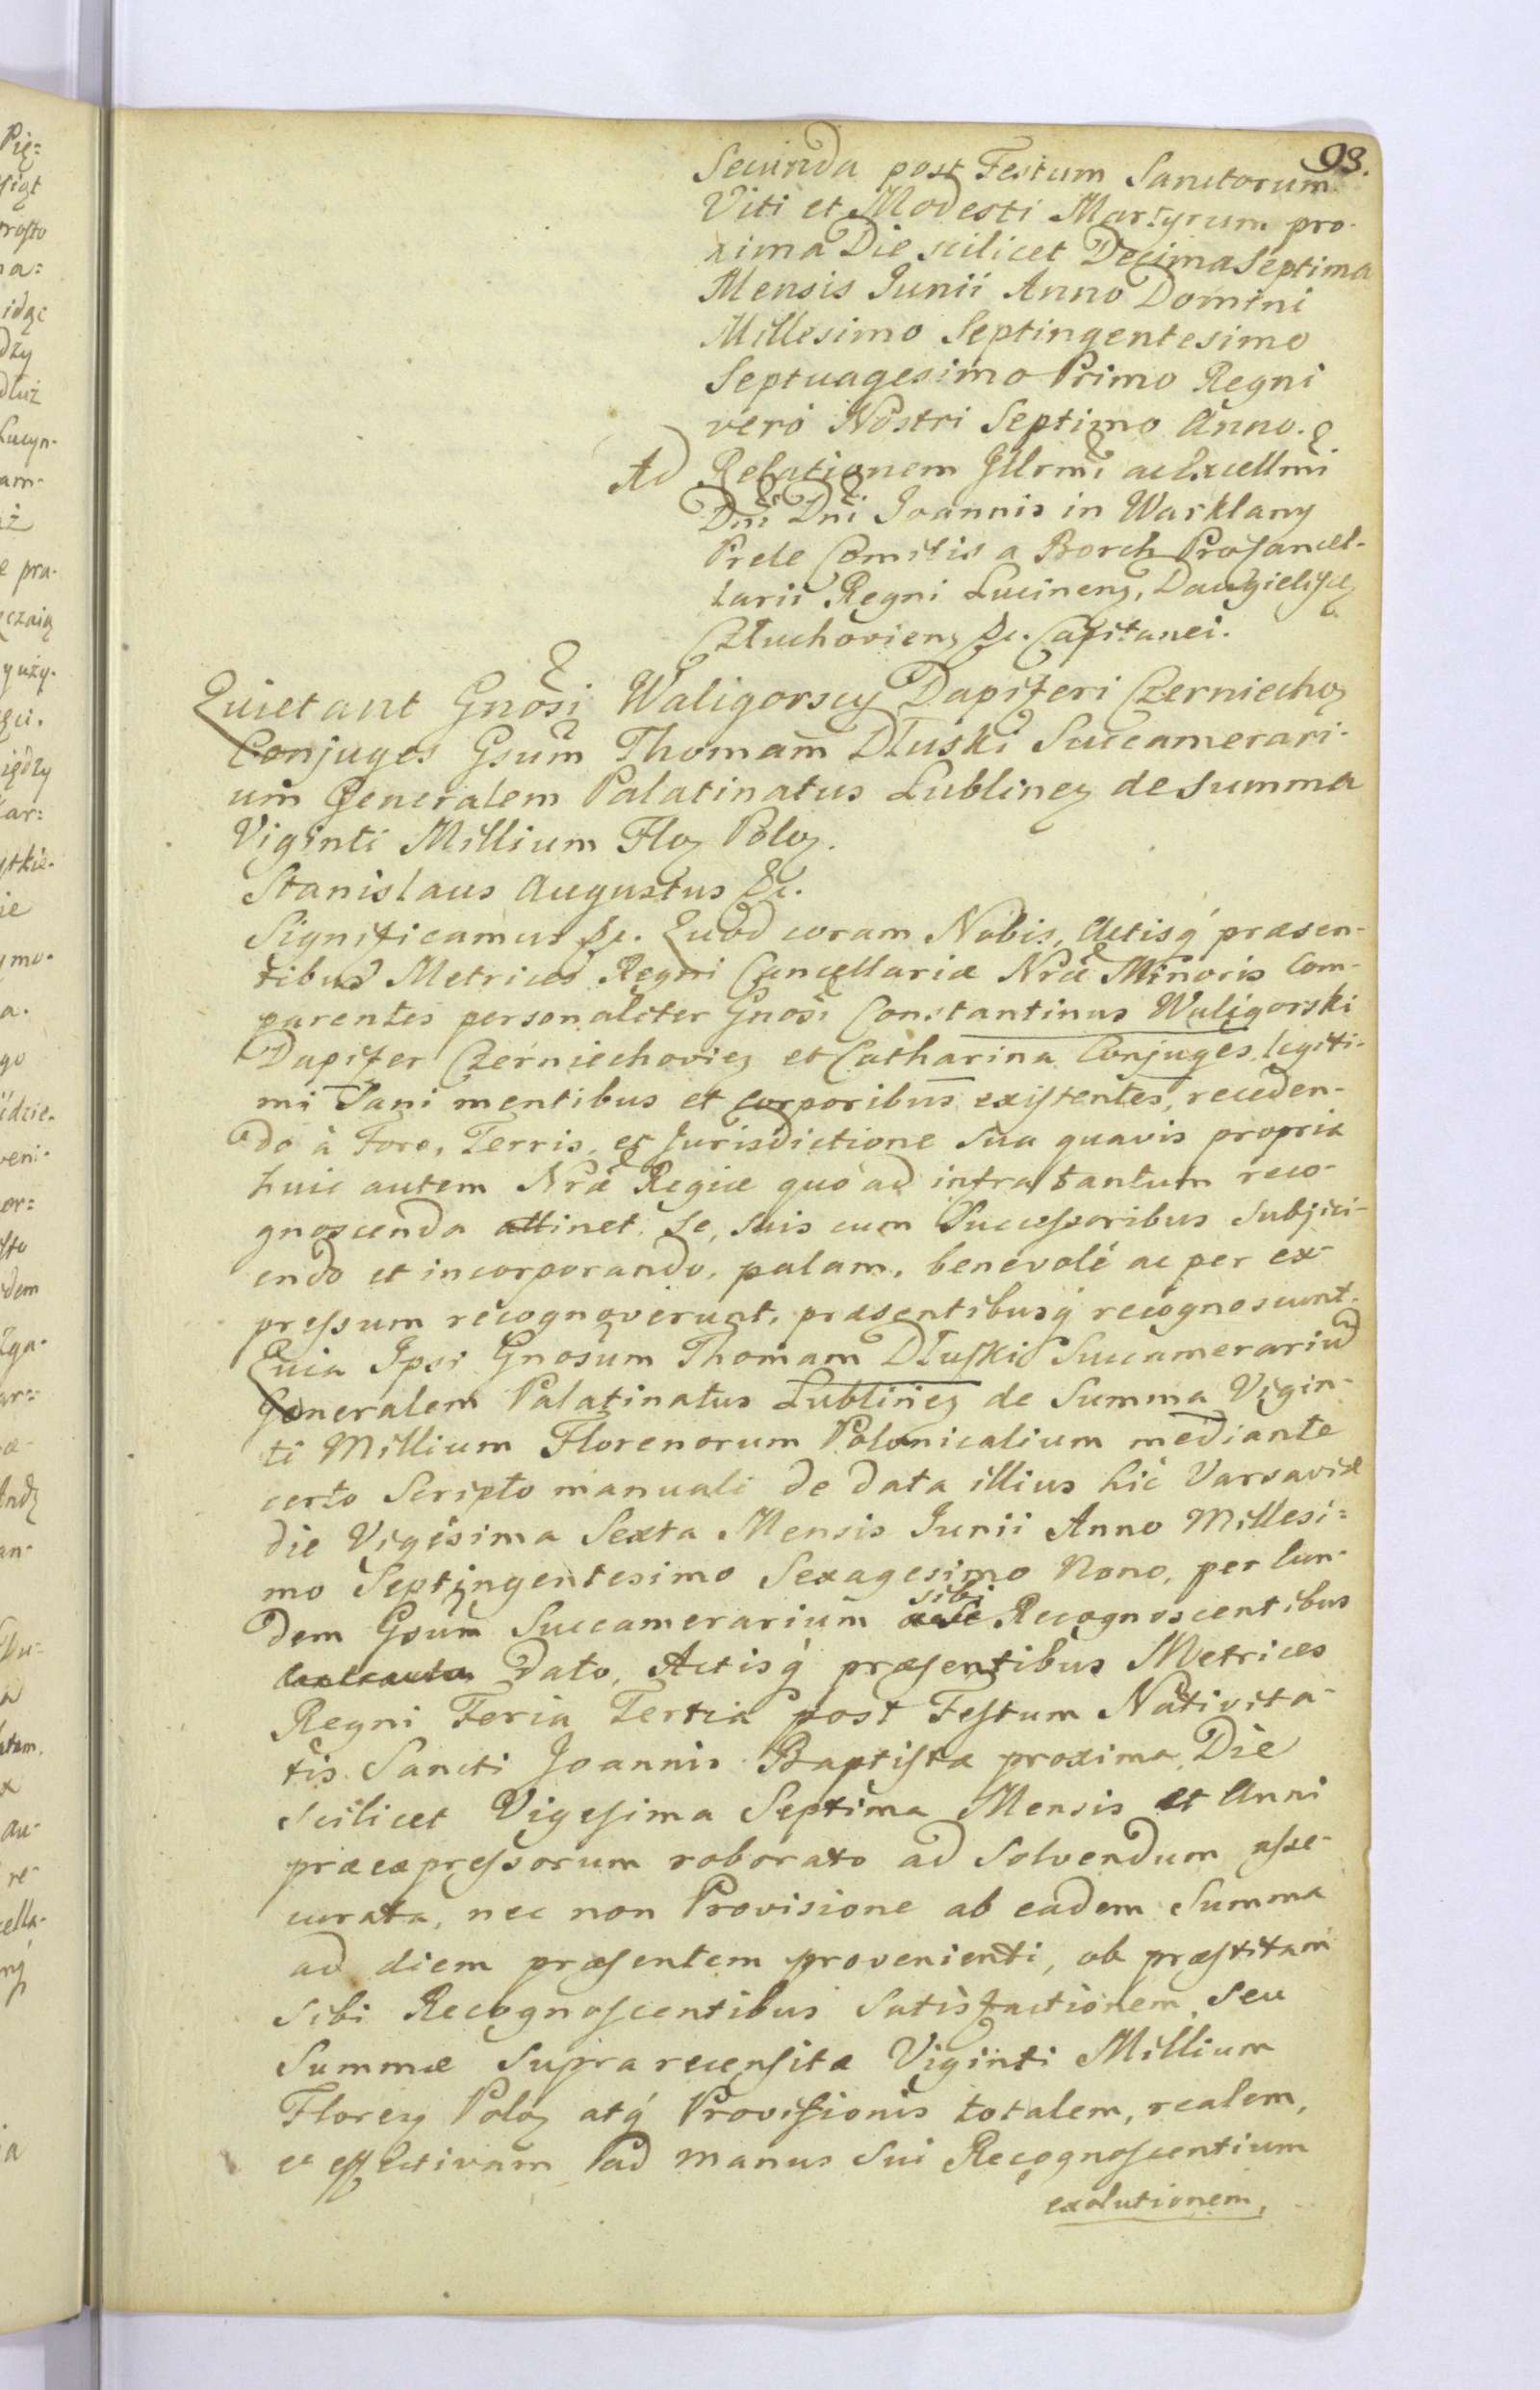 93.
Secunda post Festum Sanctorum
Viti et Modesti Martyrum pro-
xima Die scilicet Decima Septima
Mensis Junii Anno Domini
Millesimo Septingentesimo
Septuagesimo Primo Regni
verò Nostri Septimo Anno.
Ad Relationem Illrmi ac Excellmi
Dni Dni Joannis in Warklany
Prele Comitis a Borch Procancel-
larii Regni Lucinen,
Człuchovien &c. Capitanei.
Quietant Gnosi Waligorscy Dapiferi Czerniechoz
Conjuges Gsum Thomam Dłuski Succamerari-
um Generalem Palatinatus Lublinez de summa
Viginti Millium Floz Poloz.
Stanislaus Augustus &c.
Significamus &c. Quod coram Nobis, Actisq́ præsen-
tibus Metrices Regni Cancellariæ Nræ Minoris Com-
parentes personaliter Gnosi Constantinus Waligorski
Dapifer Czerniechoviez et Catharina Conjuges legiti-
mi Sani mentibus et corporibus existentes, receden-
do à Foro, Terris, et Jurisdictione sua quavis propria
huic autem Nræ Regiæ quo ad infra tantum reco-
gnoscenda attinet. se, suis cum Successoribus subjici-
endo et incorporando, palam, benevolè ac per ex-
pressum recognoverunt, præsentibusq́ recognoscunt.
Quia Ipsi Gnosum Thomam Dłuski Succamerarium
Generalem Palatinatus Lublinez de Summa Vigin-
ti Millium Florenorum Polonicalium mediante
certo Scripto manuali de data illius hic Varsaviæ
die Vigesima Sexta Mensis Junii Anno Millesi=
mo Septingentesimo Sexagesimo Nono, per Eun-
dem Gsum Succamerarium sibi Recognoscentibus
Dato, Actisq́ præsentibus Metrices
Regni Feria Tertia post Festum Nativita-
tis Sancti Joannis Baptistæ proxima, Die
scilicet Vigesima Septima Mensis et Anni
præexpressorum roborato ad solvendum asse-
curata, nec non Provisione ab eadem Summa
ad diem præsentem provenienti, ob præstitam
sibi Recognoscentibus Satisfactionem, seu
Summæ supra recensitæ Viginti Millium
Florez Poloz atq́ Provisionis totalem, realem,
et effectivam ad manus sui Recognoscentium
exolutionem,